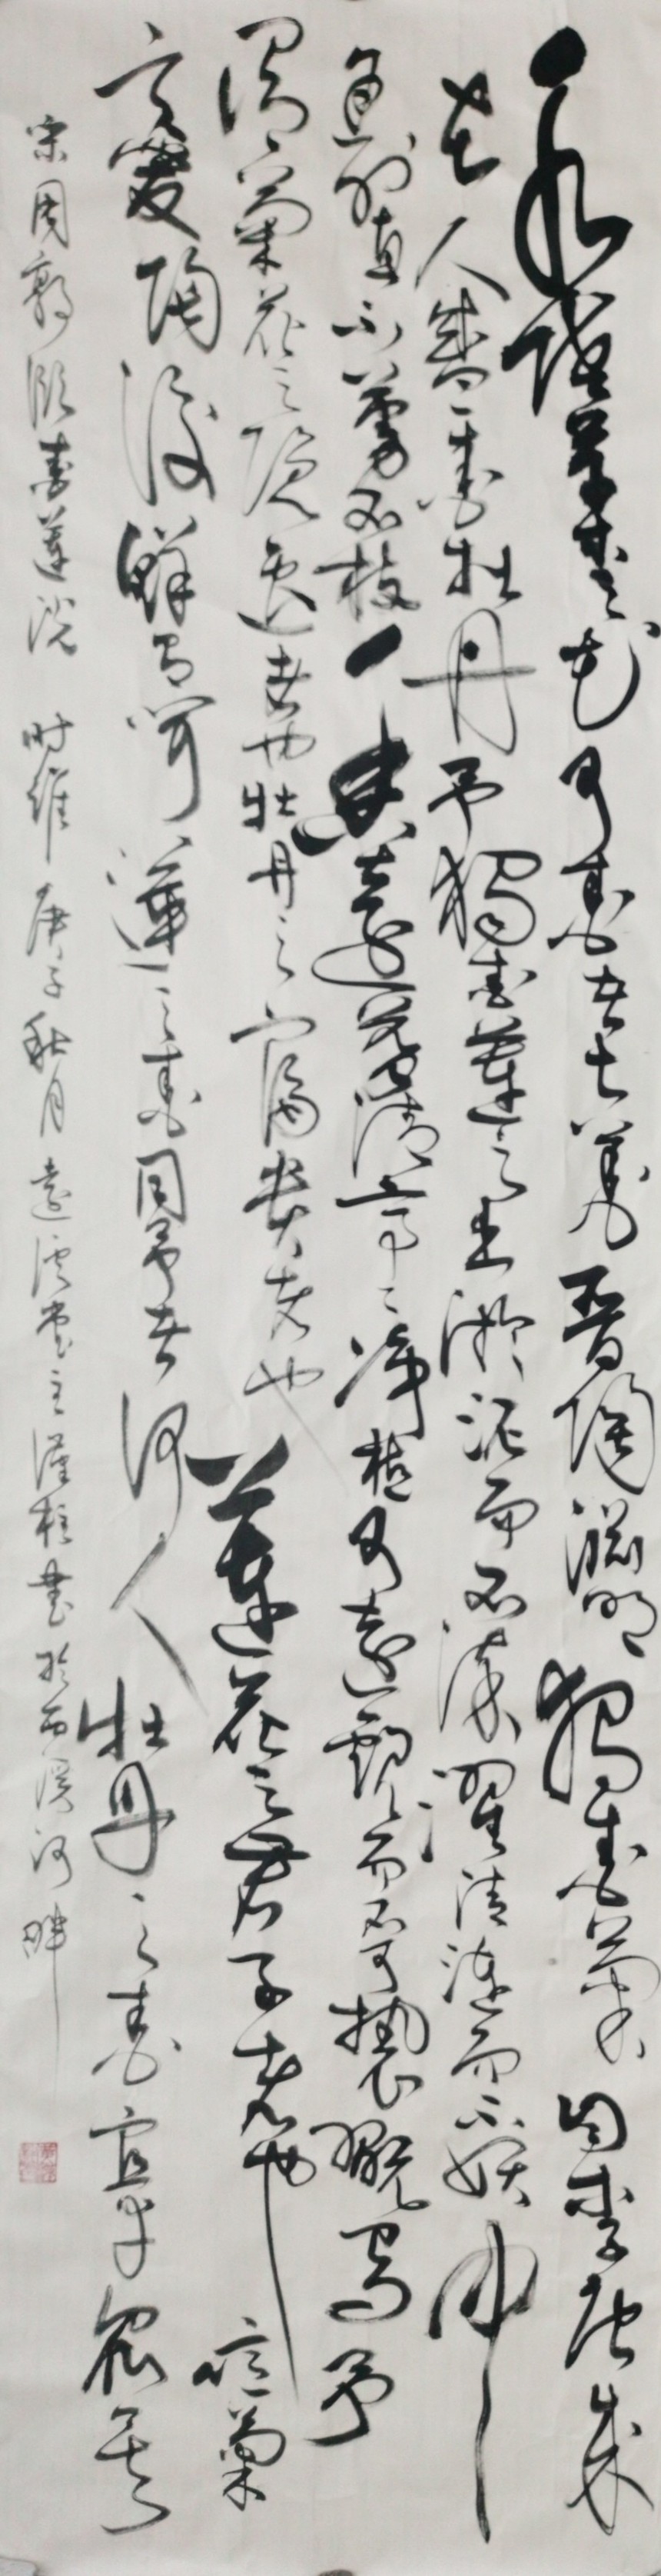 水陆草木之花可爱者甚蕃晋陶渊明独爱菊自李唐来
世人盛爱牡丹予独爱莲之出淤泥而不染濯清涟而不妖中
通外直不蔓不枝香远益清亭亭净植可远观而不可亵玩焉予
谓菊花之隐逸者也牡丹之富贵者也莲花之君子者也噫菊
之爱陶后鲜有闻莲之爱同予者何人牡丹之爱宜乎众矣
宋周敦颐爱莲说 时维庚子秋月 堂主 书于 河畔